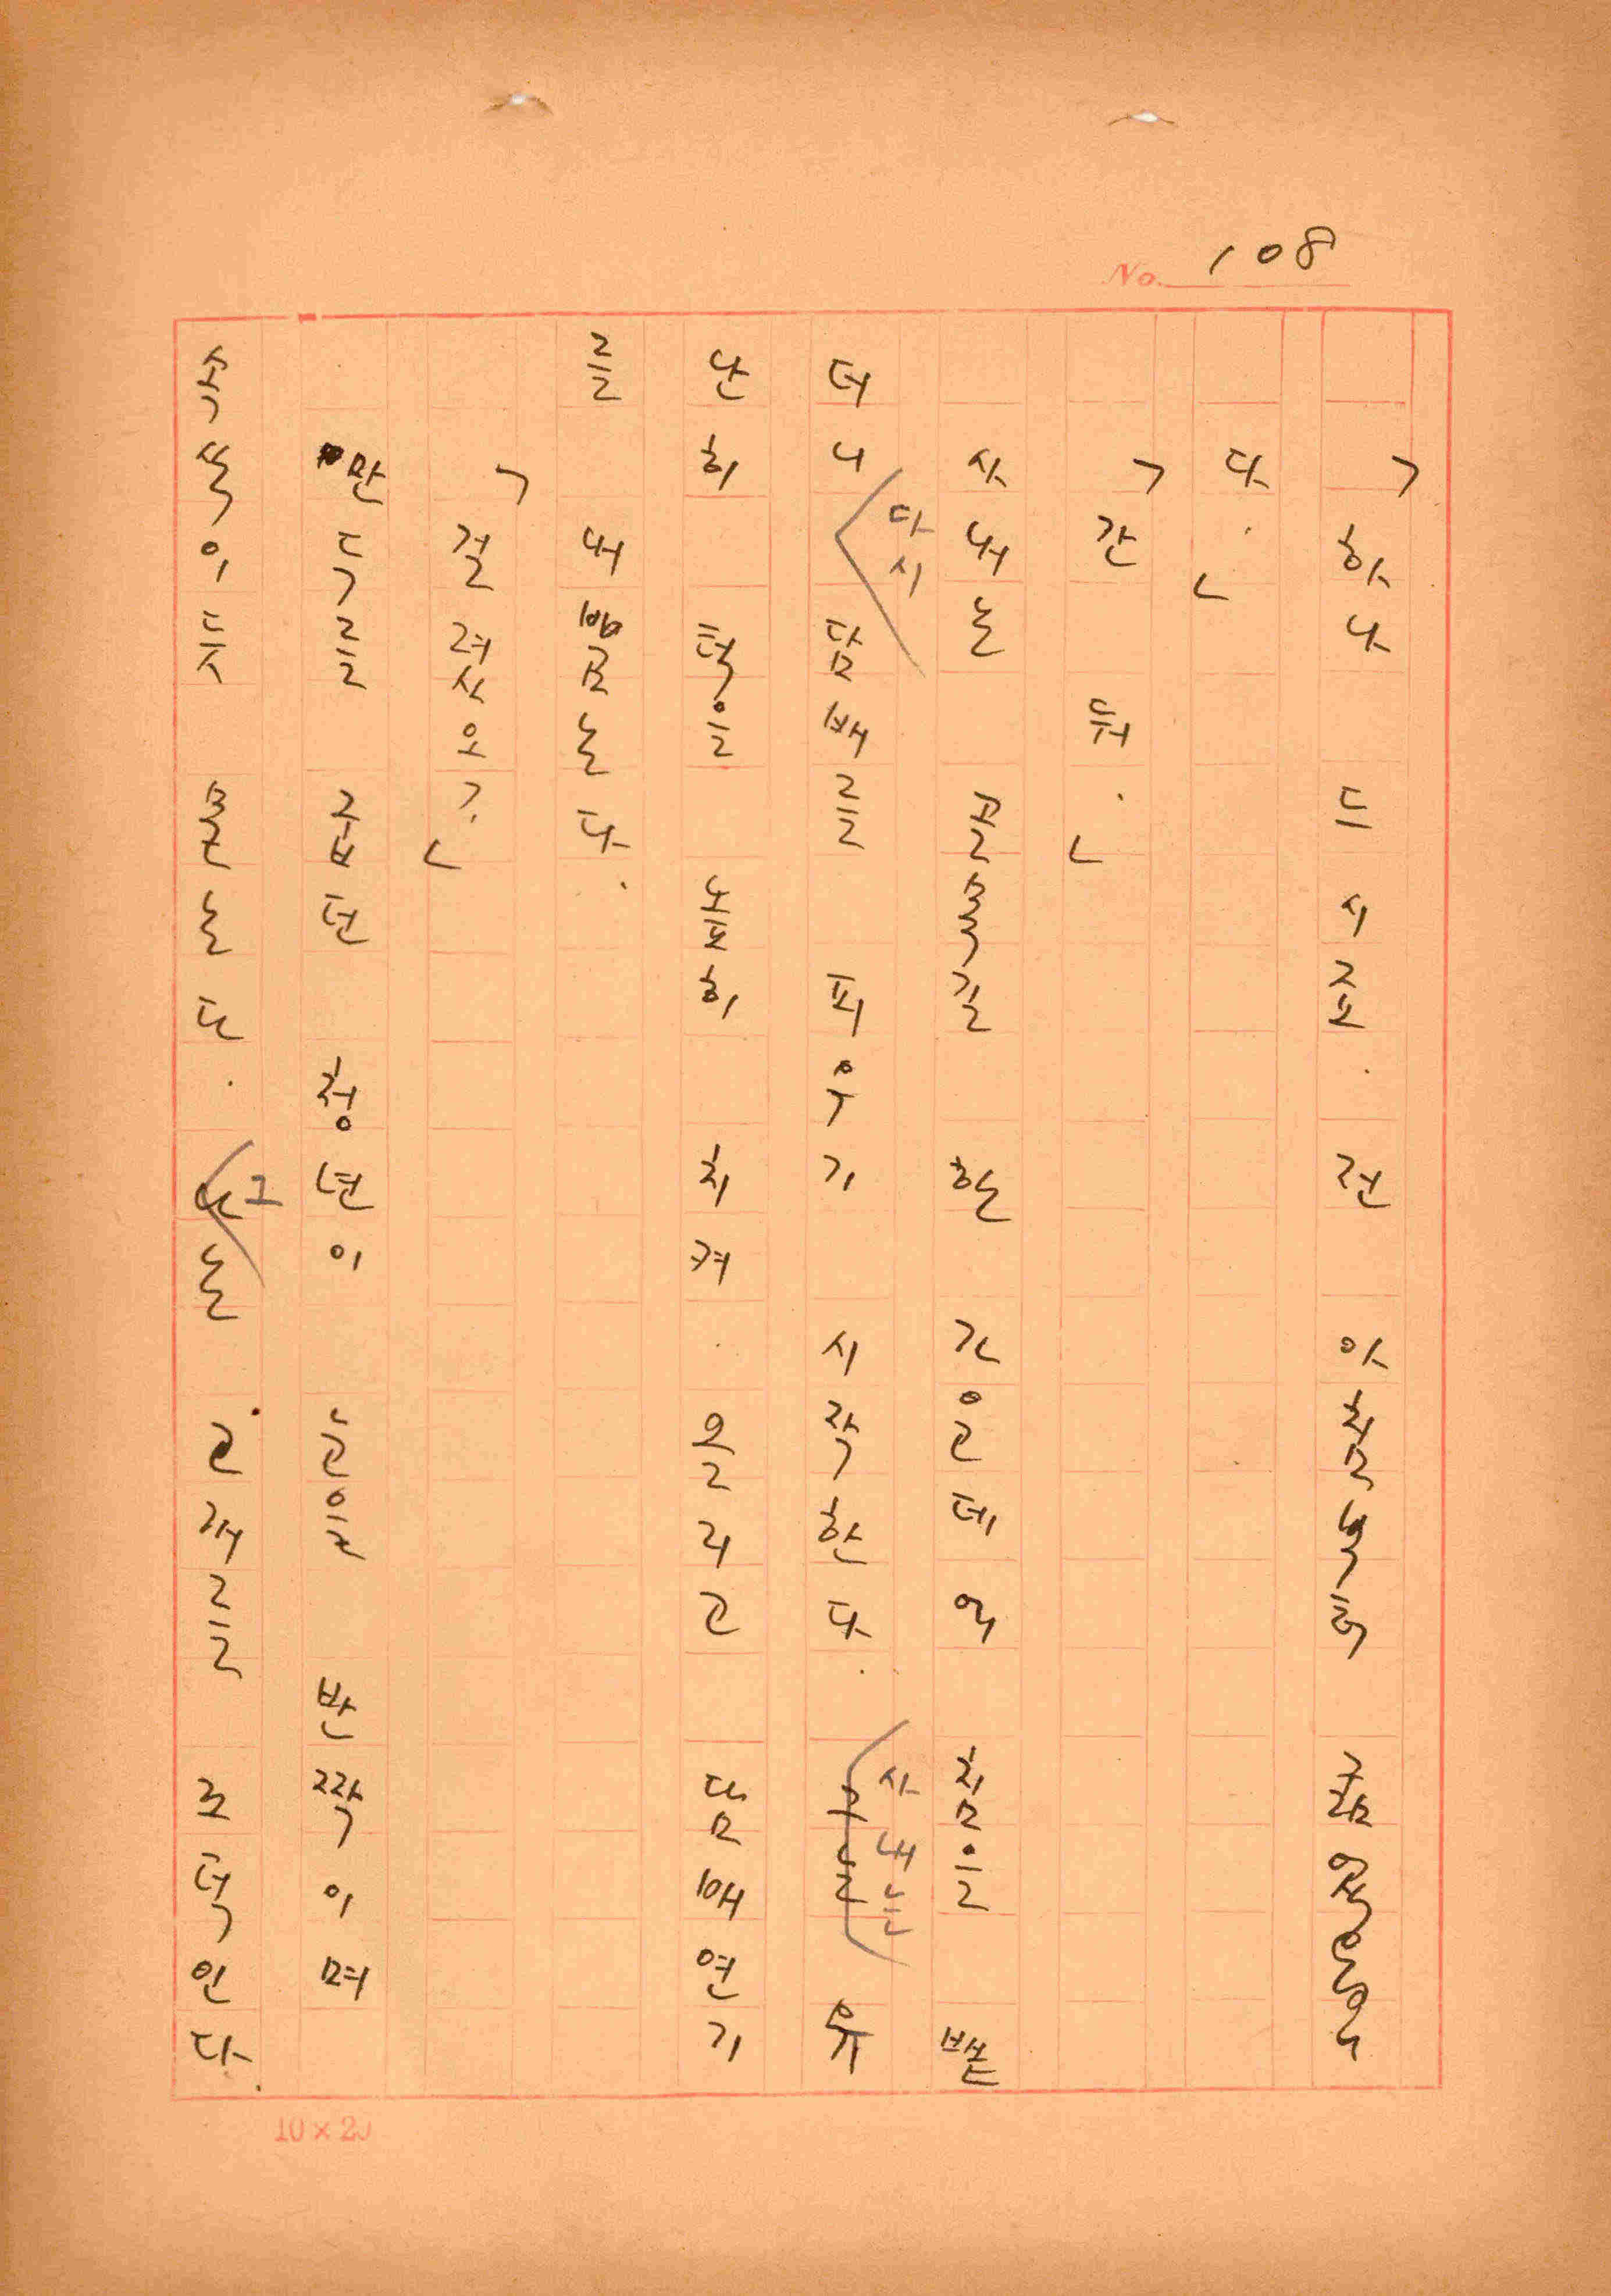 No. 108
「하나 드시죠. 전
다.」
「간 둬.」
사내는 골목길 한 가운데에 침을 뱉
더니 다시 담배를 피우기 시작한다. 사내는 유
난히 턱을 높히 치켜 올리고 담배 연기
를 내뿜는다.
「걸렸오?」
만두를 굽던 청년이 눈을 반짝이며
속삭이듯 묻는다. 그는 고개를 끄덕인다.
10×20